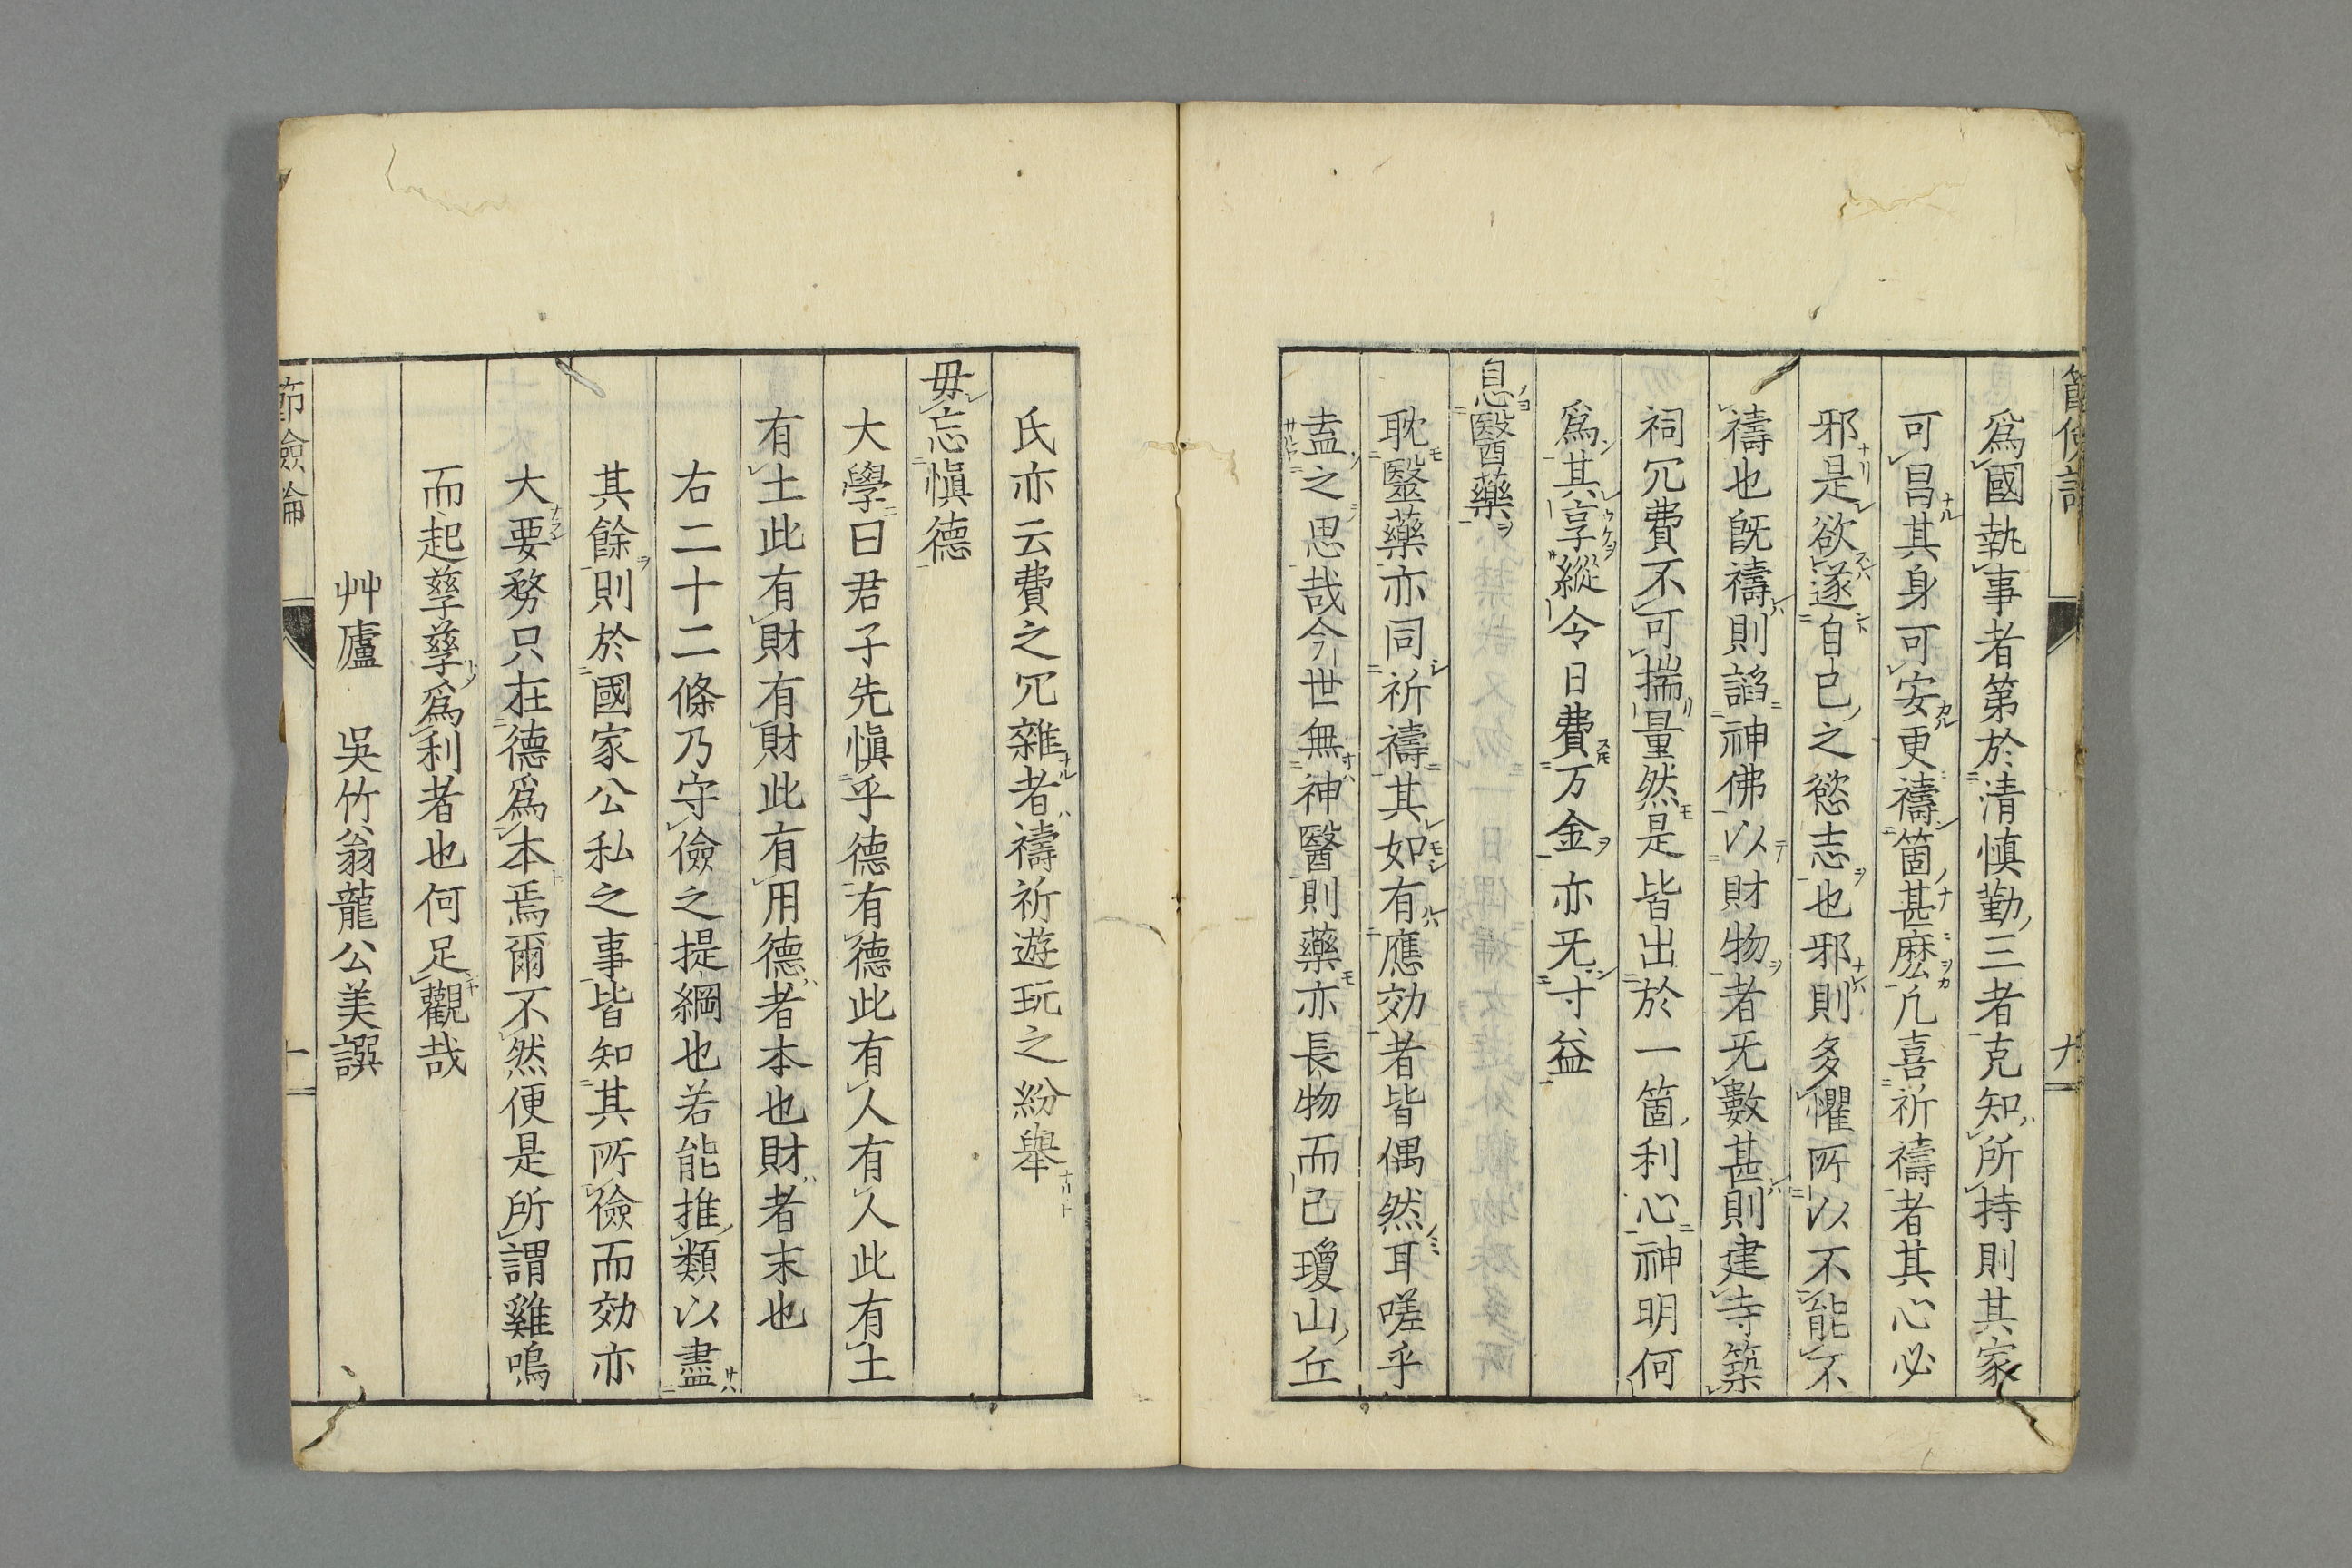 爲國執事者第於清慎勤三者克知所持則其家
可昌其身可安更禱箇甚麽凢喜祈禱者其心必
邪是欲遂自已之慾志也邪則多懼所以不能不
禱也旣禱則謟神佛以財物者旡數甚則建寺築
祠冗費不可揣量然是皆出於一箇利心神明何
爲其享縱令日費万金亦旡寸益
息醫藥
耽毉藥亦同祈禱其如有應効者皆偶然耳嗟乎
盍之思哉今世無神醫則藥亦長物而已瓊山丘
氏亦云費之冗雜者禱祈遊玩之紛舉
毋忘愼德
大學曰君子先愼乎德有德此有人有人此有土
有土此有財有財此有用德者本也財者末也
右二十二條乃守儉之提綱也若能推類以盡
其餘則於國家公私之事皆知其所儉而効亦
大要務只在德爲本焉爾不然便是所謂雞鳴
而起孳孳爲利者也何足觀哉
艸廬 吳竹翁龍公美譔
節儉論